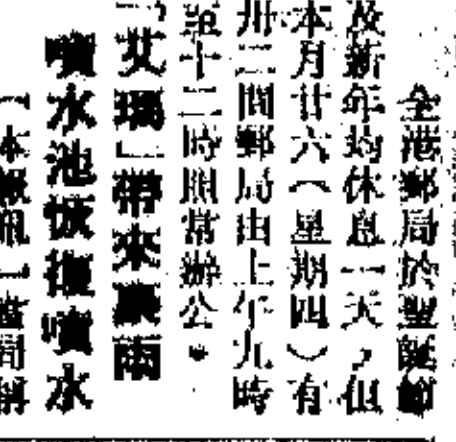 全港郵局於聖誕節
及新年均休息一天，但
本月廿六（星期四）有
卅二間郵局由上午九時
至十二時照常辦公。
「艾瑪」帶來豪雨
噴水池恢復噴水
【本報訊】當局稱